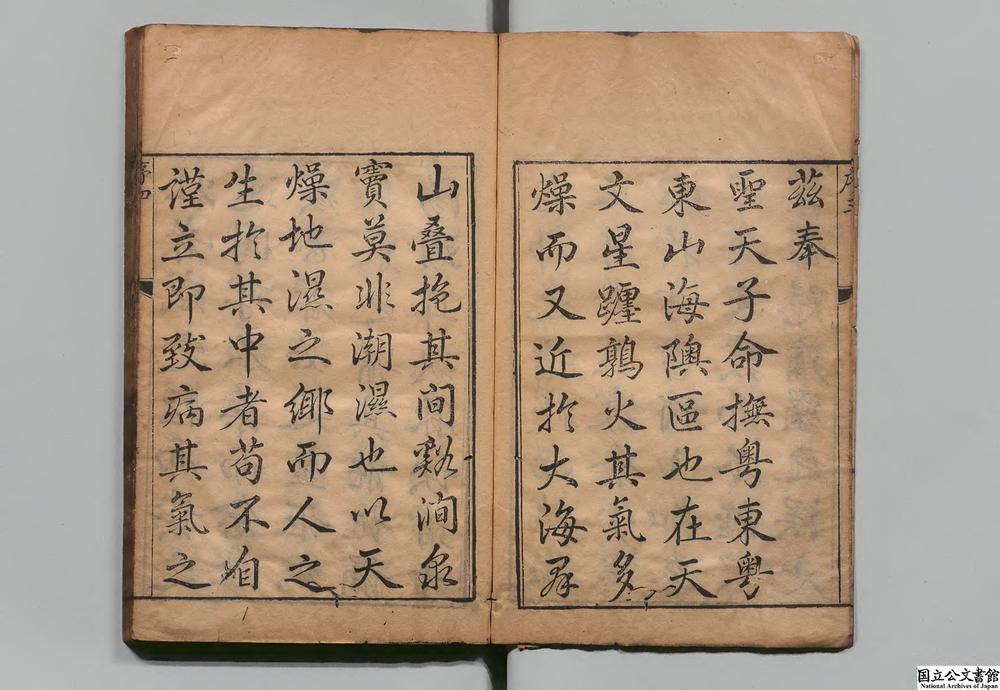 茲奉
聖天子命撫粵東粵
東山海隩區也在天
文星躔鶉火其氣多
燥而又近於大海群
山叠抱其间谿澗泉
竇莫非潮濕也以天
燥地濕之鄉而人之
生於其中者苟不自
謹立即致病其氣之
序三
序四
国立公文書館
National Archives of Japan